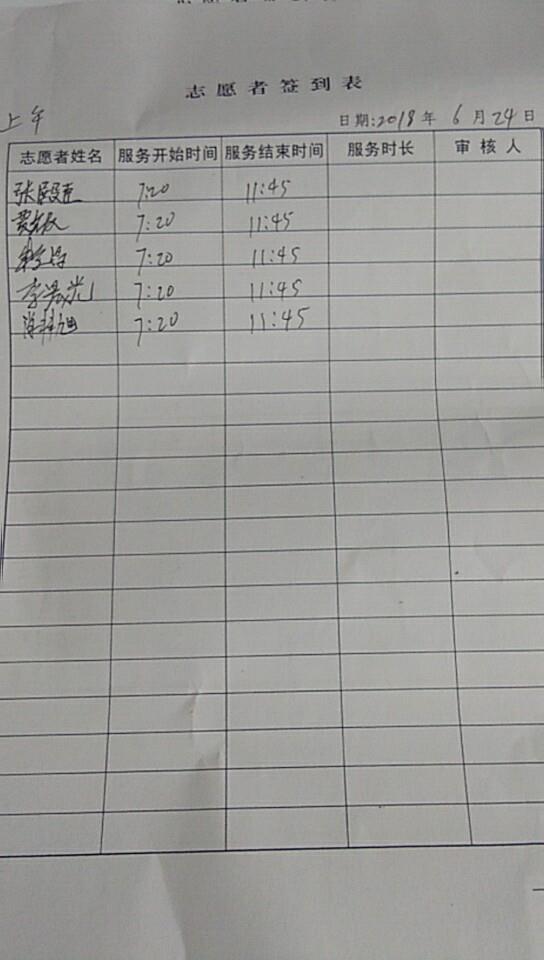 志愿者签到表
上午
日期:2018年 6月24日
志愿者姓名 服务开始时间 服务结束时间 服务时长 审核人
7:20 11:45
7:20 11:45
7:20 11:45
7:20 11:45
7:20 11:45